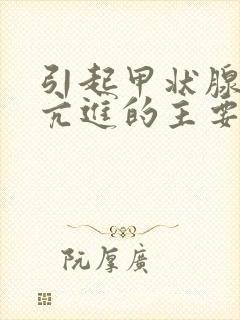 引起甲状腺
亢进的主要
阮厚廣